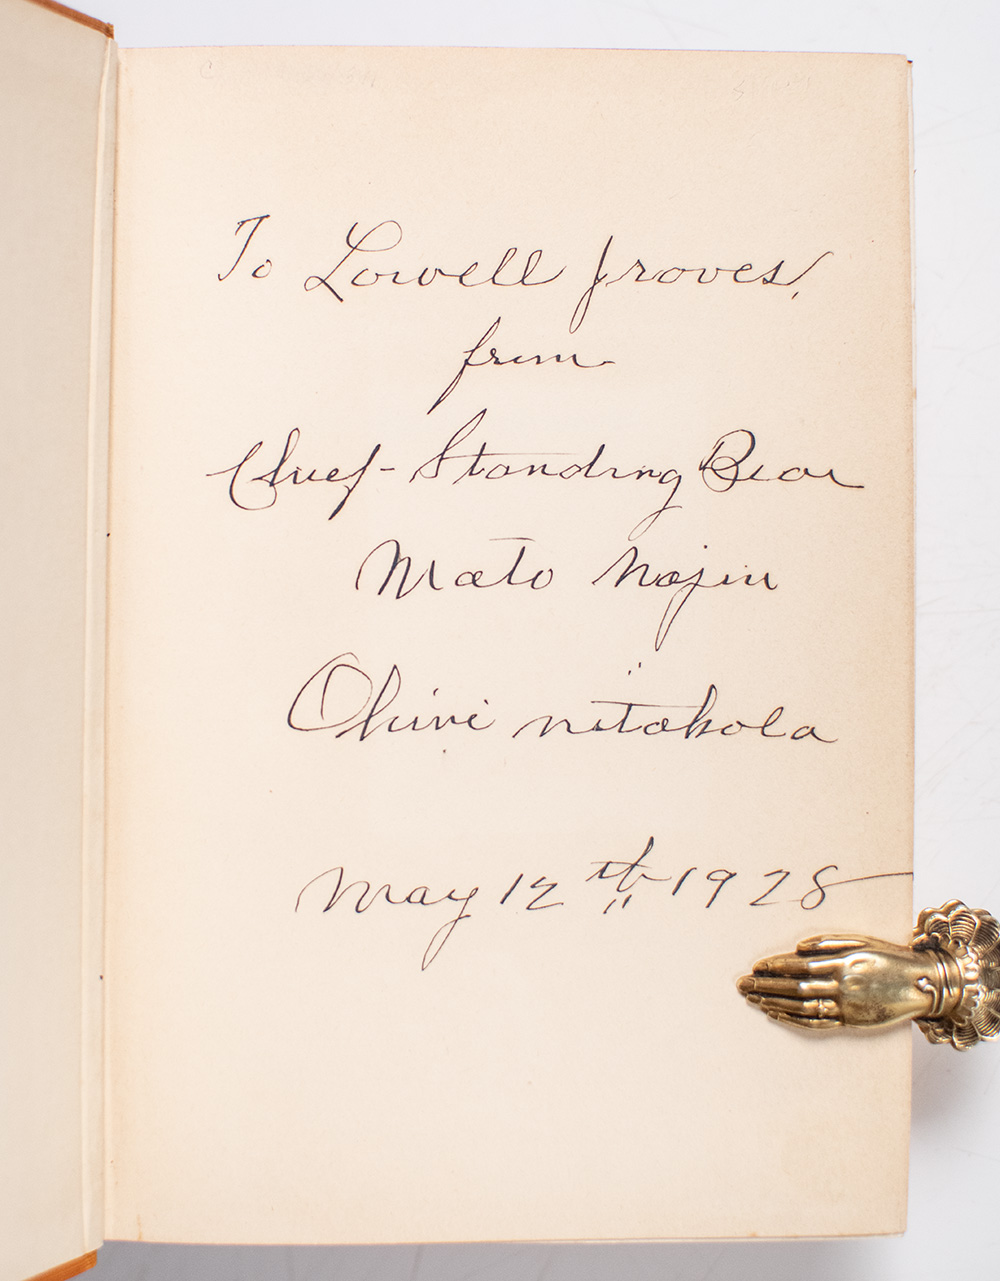 To Lowell Groves,
from
Chief- Standing Bear
Mato Najin
nitakola
May 12th 1928